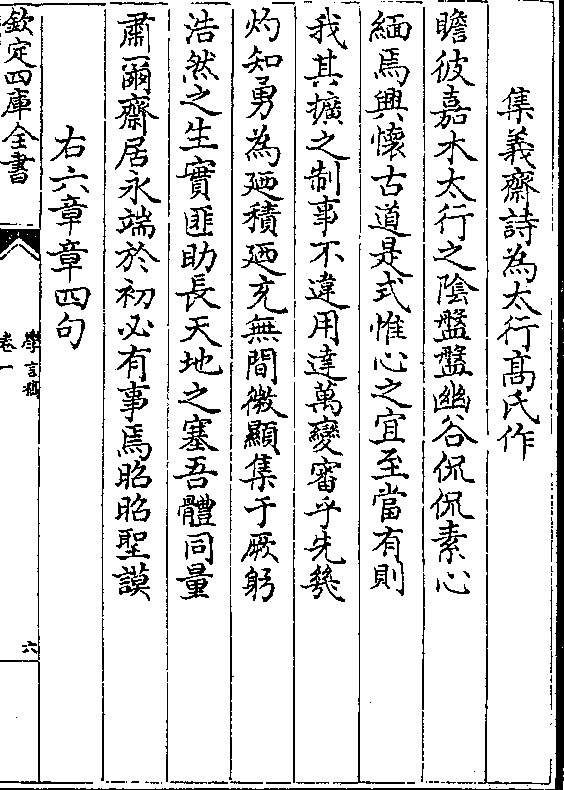 集義齋詩為太行髙氏作
瞻彼嘉木太行之隂盤盤幽谷侃侃素心
緬焉興懷古道是式惟心之宜至當有則
我其擴之制事不違用達萬變審乎先幾
灼知勇為廼積廼充無間微顯集于厥躬
浩然之生實匪助長天地之塞吾體同量
肅爾齋居永端於初必有事焉昭昭聖謨
右六章章四句
欽定四庫全書
學言稿
卷一
六